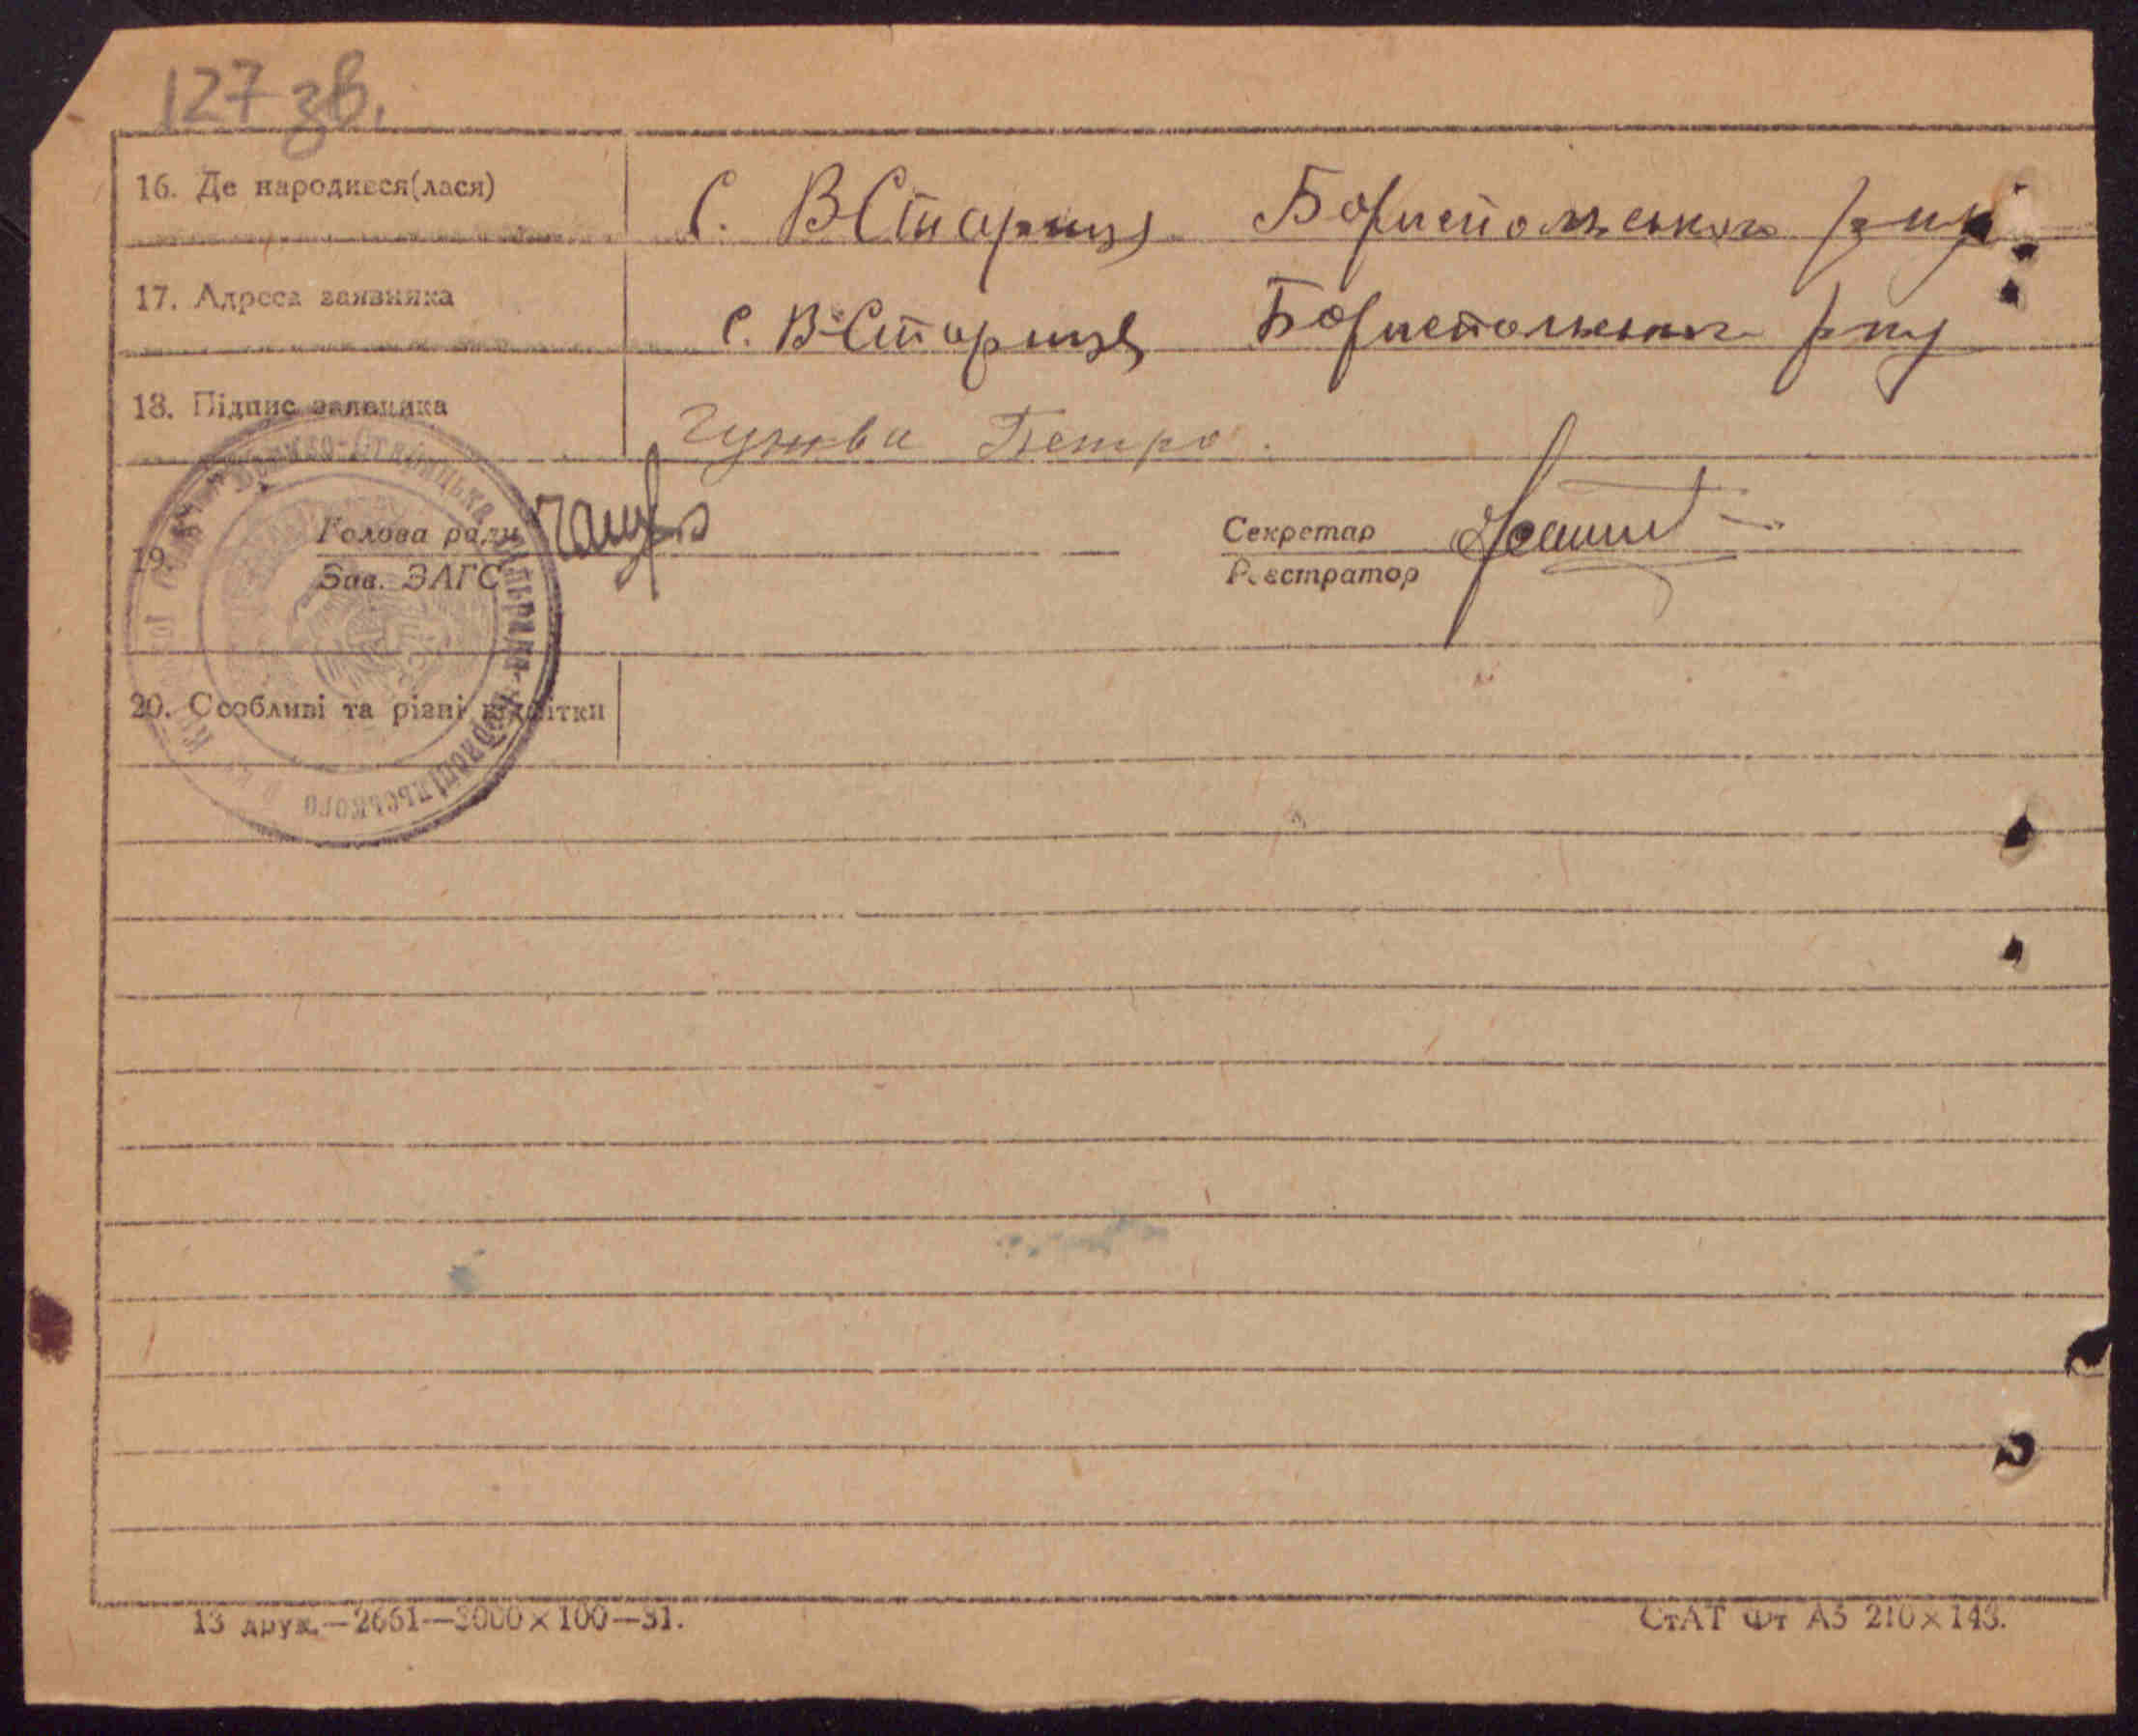 127 зв.
16. Де народився(лася) С. ВСтариця Бориспольського р-ну
17. Адреса заявника С. В-Стариця Бориспольського р-ну
18. Підпис заявника Гужва Петро.
19. Голова ради Секретар
Зав. ЗАГС Реєстратор
20. Особливі та різні відмітки
13 друк.—2661—3000×100—31.
СтАТ Фт А5 210×143.